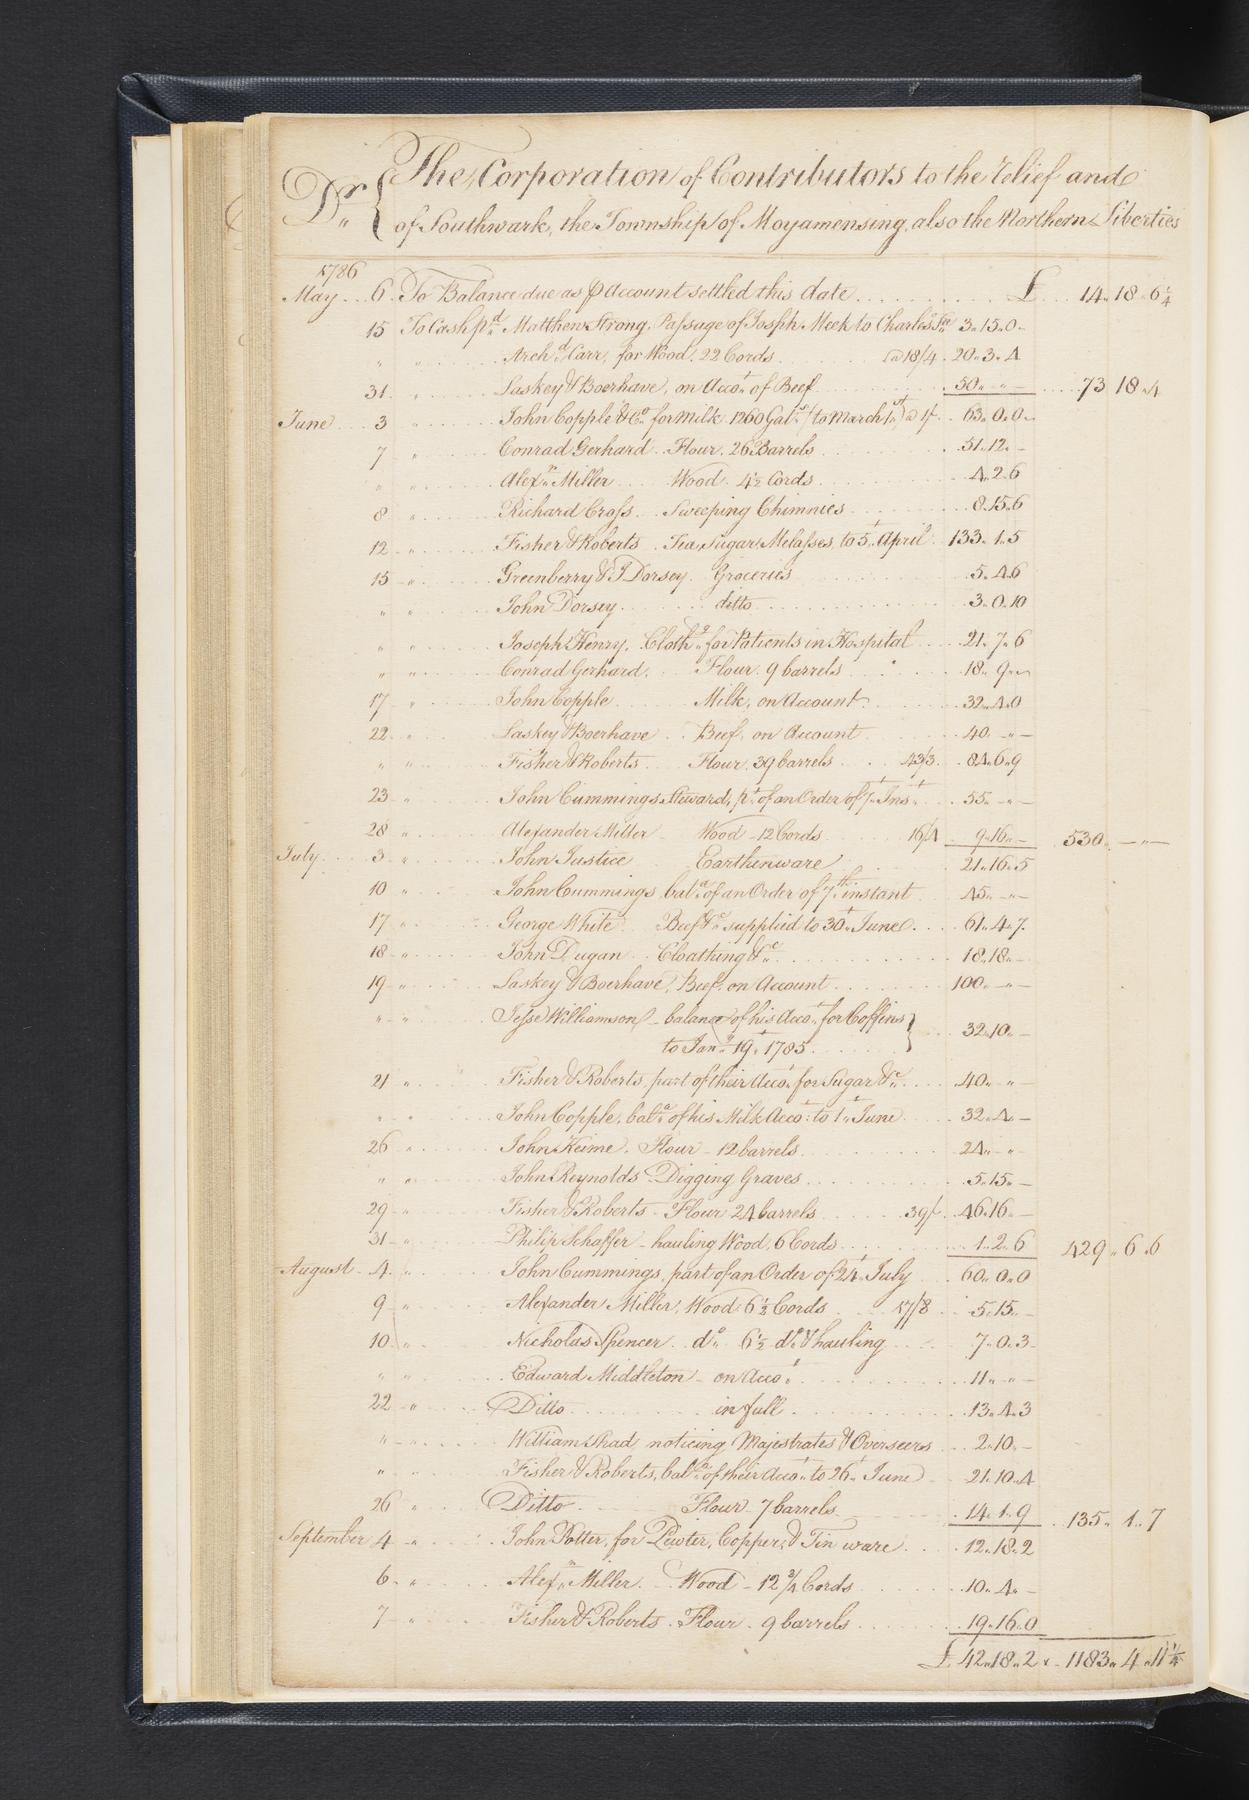 Dr { The Corporation of Contributors to the relief and
of Southwark, the Township of Moyamensing, also the Northern Liberties
1786
May 6 To Balance due as ⅌ Account settled this date £ 14"18"6¼
15 To Cash pd Matthew Strong, Passage of Joseph Meek to Charles Tn 3"15"0
" " Archd Carr, for Wood 22 Cords @ 18/4 20"3"4
31 " Laskey & Boerhave, on Accot of Beef 50"-"- 73"18"4
June 3 " John Copple & Co for Milk 1260 Gals (to March 1st) @ 1/ 63"0"0
7 " Conrad Gerhard Flour 26 Barrels 51"12"-
" " Alexr Miller Wood 4½ Cords 4"2"6
8 " Richard Cross Sweeping Chimnies 8"15"6
12 " Fisher & Roberts Tea, Sugar, Melasses, to 5t April 133"1"5
15 " Greenberry & J Dorsey Groceries 5"4"6
" " John Dorsey ditto 3"0"10
" " Joseph Henry, Clothg for Patients in Hospital 21"7"6
" " Conrad Gerhard, Flour 9 barrels 18"9"-
17 " John Copple Milk, on Account 32"4"0
22 " Laskey & Boerhave Beef, on Account 40"-"-
" " Fisher & Roberts Flour, 39 barrels 43/3 84"6"9
23 " John Cummings Steward, pt of an Order of 7t Inst 55"-"-
28 " Alexander Miller Wood 12 Cords 16/4 9"16"- 530"-"-
July 3 " John Justice Earthenware 21"16"5
10 " John Cummings, bala of an Order of 7th instant 45"-"-
17 " George White Beef &c supplied to 30t June 61"4"7
18 " John Dugan Cloathing &c 18"18"-
19 " Laskey & Boerhave, Beef, on Account 100"-"-
" " Jesse Williamson balance of his Accot for Coffins }
to Jany 19t 1785 32"10"-
21 " Fisher & Roberts, part of their Accot for Sugar &c 40"-"-
" " John Copple, bala of his Milk Accot to 1t June 32"4-
26 " John Keime, Flour 12 barrels 24"-"-
" " John Reynolds Digging Graves 5"15"-
29 " Fisher & Roberts Flour 24 barrels 39/ 46"16"-
31 " Philip Schaffer hauling Wood, 6 Cords 1"2"6 429"6"6
August 4 " John Cummings, part of an Order of 24t July 60"0"0
9 " Alexander Miller, Wood 6½ Cords 17/8 5"15"-
10 " Nicholas Spencer do 6½ do & hauling 7"0"3
" " Edward Middleton on Accot 11"-"-
22 " Ditto in full 13"4"3
" " William Shad, noticing Majestrates & Overseers 2"10"-
" " Fisher & Roberts, bala of their Accot to 26t June 21"10"4
26 " Ditto Flour 7 barrels 14"1"9 135"1"7
September 4 " John Potter, for Pewter, Copper, & Tin ware 12"18"2
6 " Alexr Miller Wood 12¾ Cords 10"4"-
7 " Fisher & Roberts Flour 9 barrels 19"16"0
£ 42"18"2 1183"4"11¼